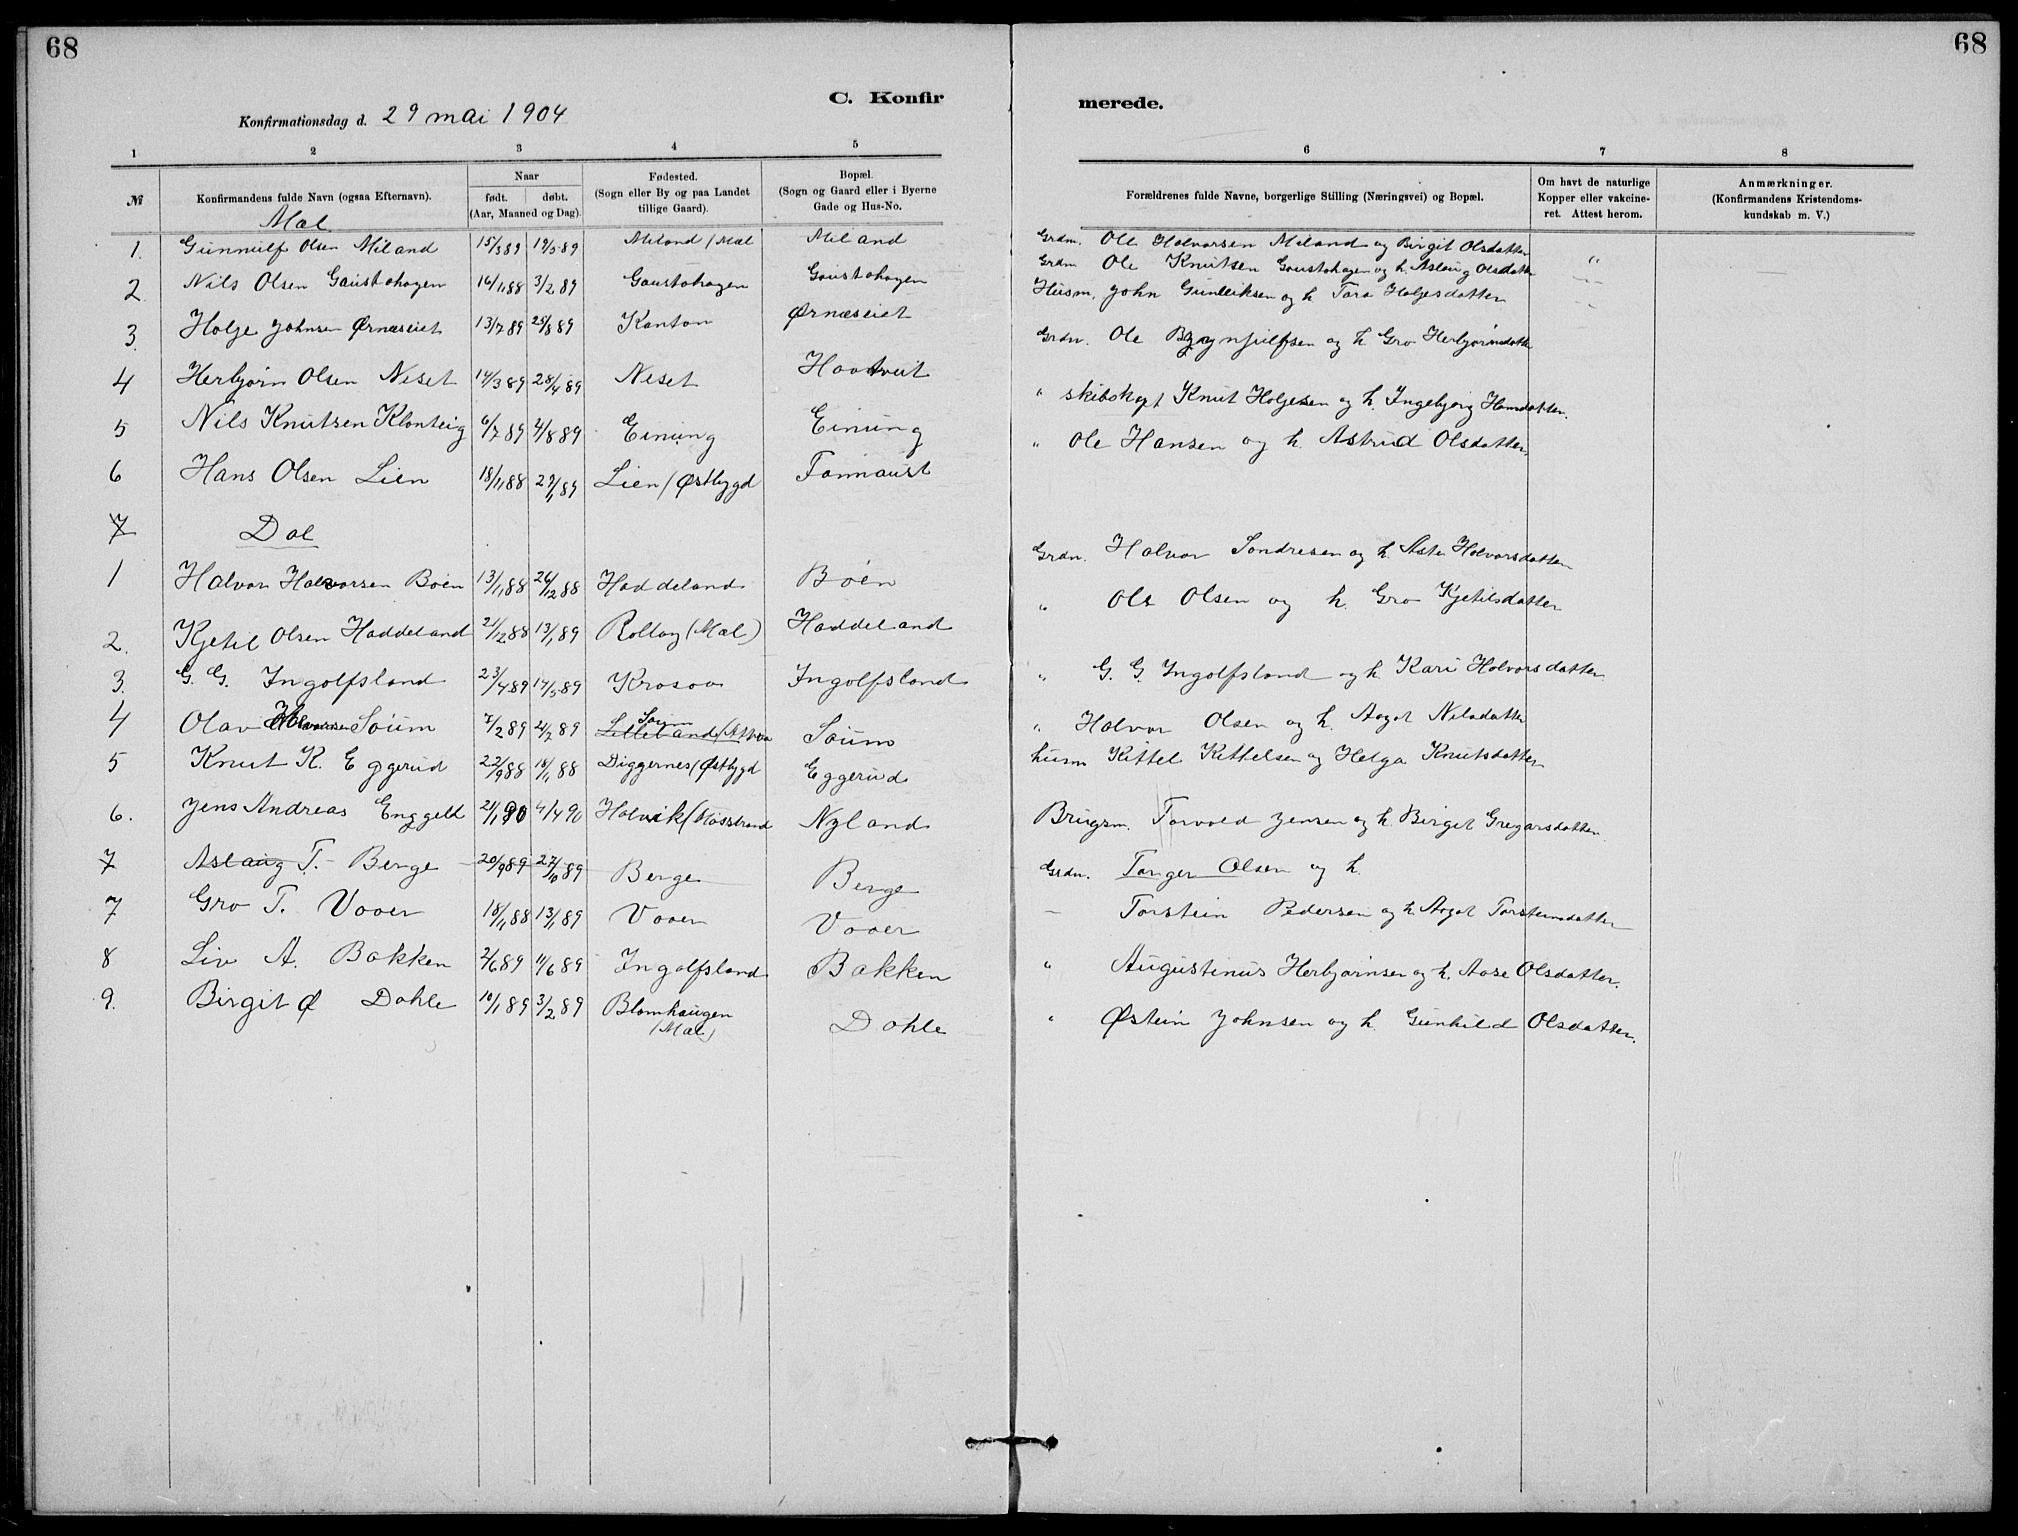 68
68
C. Konfir
merede.
Konfirmationsdag d. 29 mai 1904
1 2 3 4 5 6 7 8
№ Konfirmandens fulde Navn (ogsaa Efternavn). Naar født. døbt. (Aar, Maaned og Dag). Fødested. (Sogn eller By og paa Landet tillige Gaard). Bopæl. (Sogn og Gaard eller i Byerne Gade og Hus-No. Forældrenes fulde Navne, borgerlige Stilling (Næringsvei) og Bopæl. Om havt de naturlige Kopper eller vakcineret. Attest herom. Anmærkninger. (Konfirmandens Kristendomskundskab m. V.)
Mæl
1. Gunnulf Olsen Miland 15/3 89 19/5 89 Miland / Mæl Miland Grdm. Ole Halvorsen Miland og Birgit Olsdatter
2 Nils Olsen Gaustahagen 16/11 88 3/2 89 Gaustahagen Gaustahagen Grdm Ole Knutsen Gaustahagen og h. Aslaug Olsdatter "
3. Holje Johnsen Ørnæseiet 13/7 89 25/8 89 Kanton Ørnæseiet Husm. John Gunleiksen og h Tara Holjesdatter
4 Herbjørn Olsen Neset 14/3 89 28/4 89 Neset Haadtveit Grdm. Ole Brynjulfsen og h Gro Herbjørnsdatter
5 Nils Knutsen Klonteig 6/7 89 4/8 89 Einung Einung " skibskapt Knut Holjesen og h. Ingebjørg Hansdatter.
6 Hans Olsen Lien 18/11 88 29/1 89 Lien / Østbygd Fannaust " Ole Hansen og h. Astrid Olsdatter
7 Dal
1 Halvor Halvorsen Bøen 13/11 88 26/12 88 Haddeland Bøen Grdm. Halvor Sondresen og h. Aste Halvorsdatter
2. Kjetil Olsen Haddeland 21/12 88 13/1 89 Rollag (Mæl) Haddeland " Ole Olsen og h. Gro Kjetilsdatter
3. G. G. Ingolfsland 23/4 89 14/5 89 Krosoa Ingolfsland " G. G. Ingolfsland og h. Kari Halvorsdatter
4 Olav Halvorsen Søum 7/2 89 21/7 89 Søum Lilleland / Atraa Søum " Halvor Olsen og h. Aagot Nilsdatter
5 Knut K. Eggerud 22/9 88 18/11 88 Diggernes / Østbygd Eggerud husm Kittel Kittelsen og Helga Knutsdatter
6. Jens Andreas Enggeld 21/1 90 4/4 90 Halvik (Møsstrand Nyland Brugsm. Torvald Jensen og h. Birgit Gregarsdatter
7 Aslaug T. Berge 20/9 89 27/10 89 Berge Berge Grdm. Targer Olsen og h.
7 Gro T. Vaaer 18/11 88 13/1 89 Vaaer Vaaer – Torstein Pedersen og h Aagot Torsteinsdatter
8 Liv A. Bakken 2/6 89 11/6 89 Ingolfsland Bakken " Augustinus Herbjørnsen og h. Aase Olsdatter.
9. Birgit Ø Dahle 10/1 89 3/2 89 Blomhaugen (Mæl) Dahle " Østein Johnsen og h. Gunhild Olsdatter.